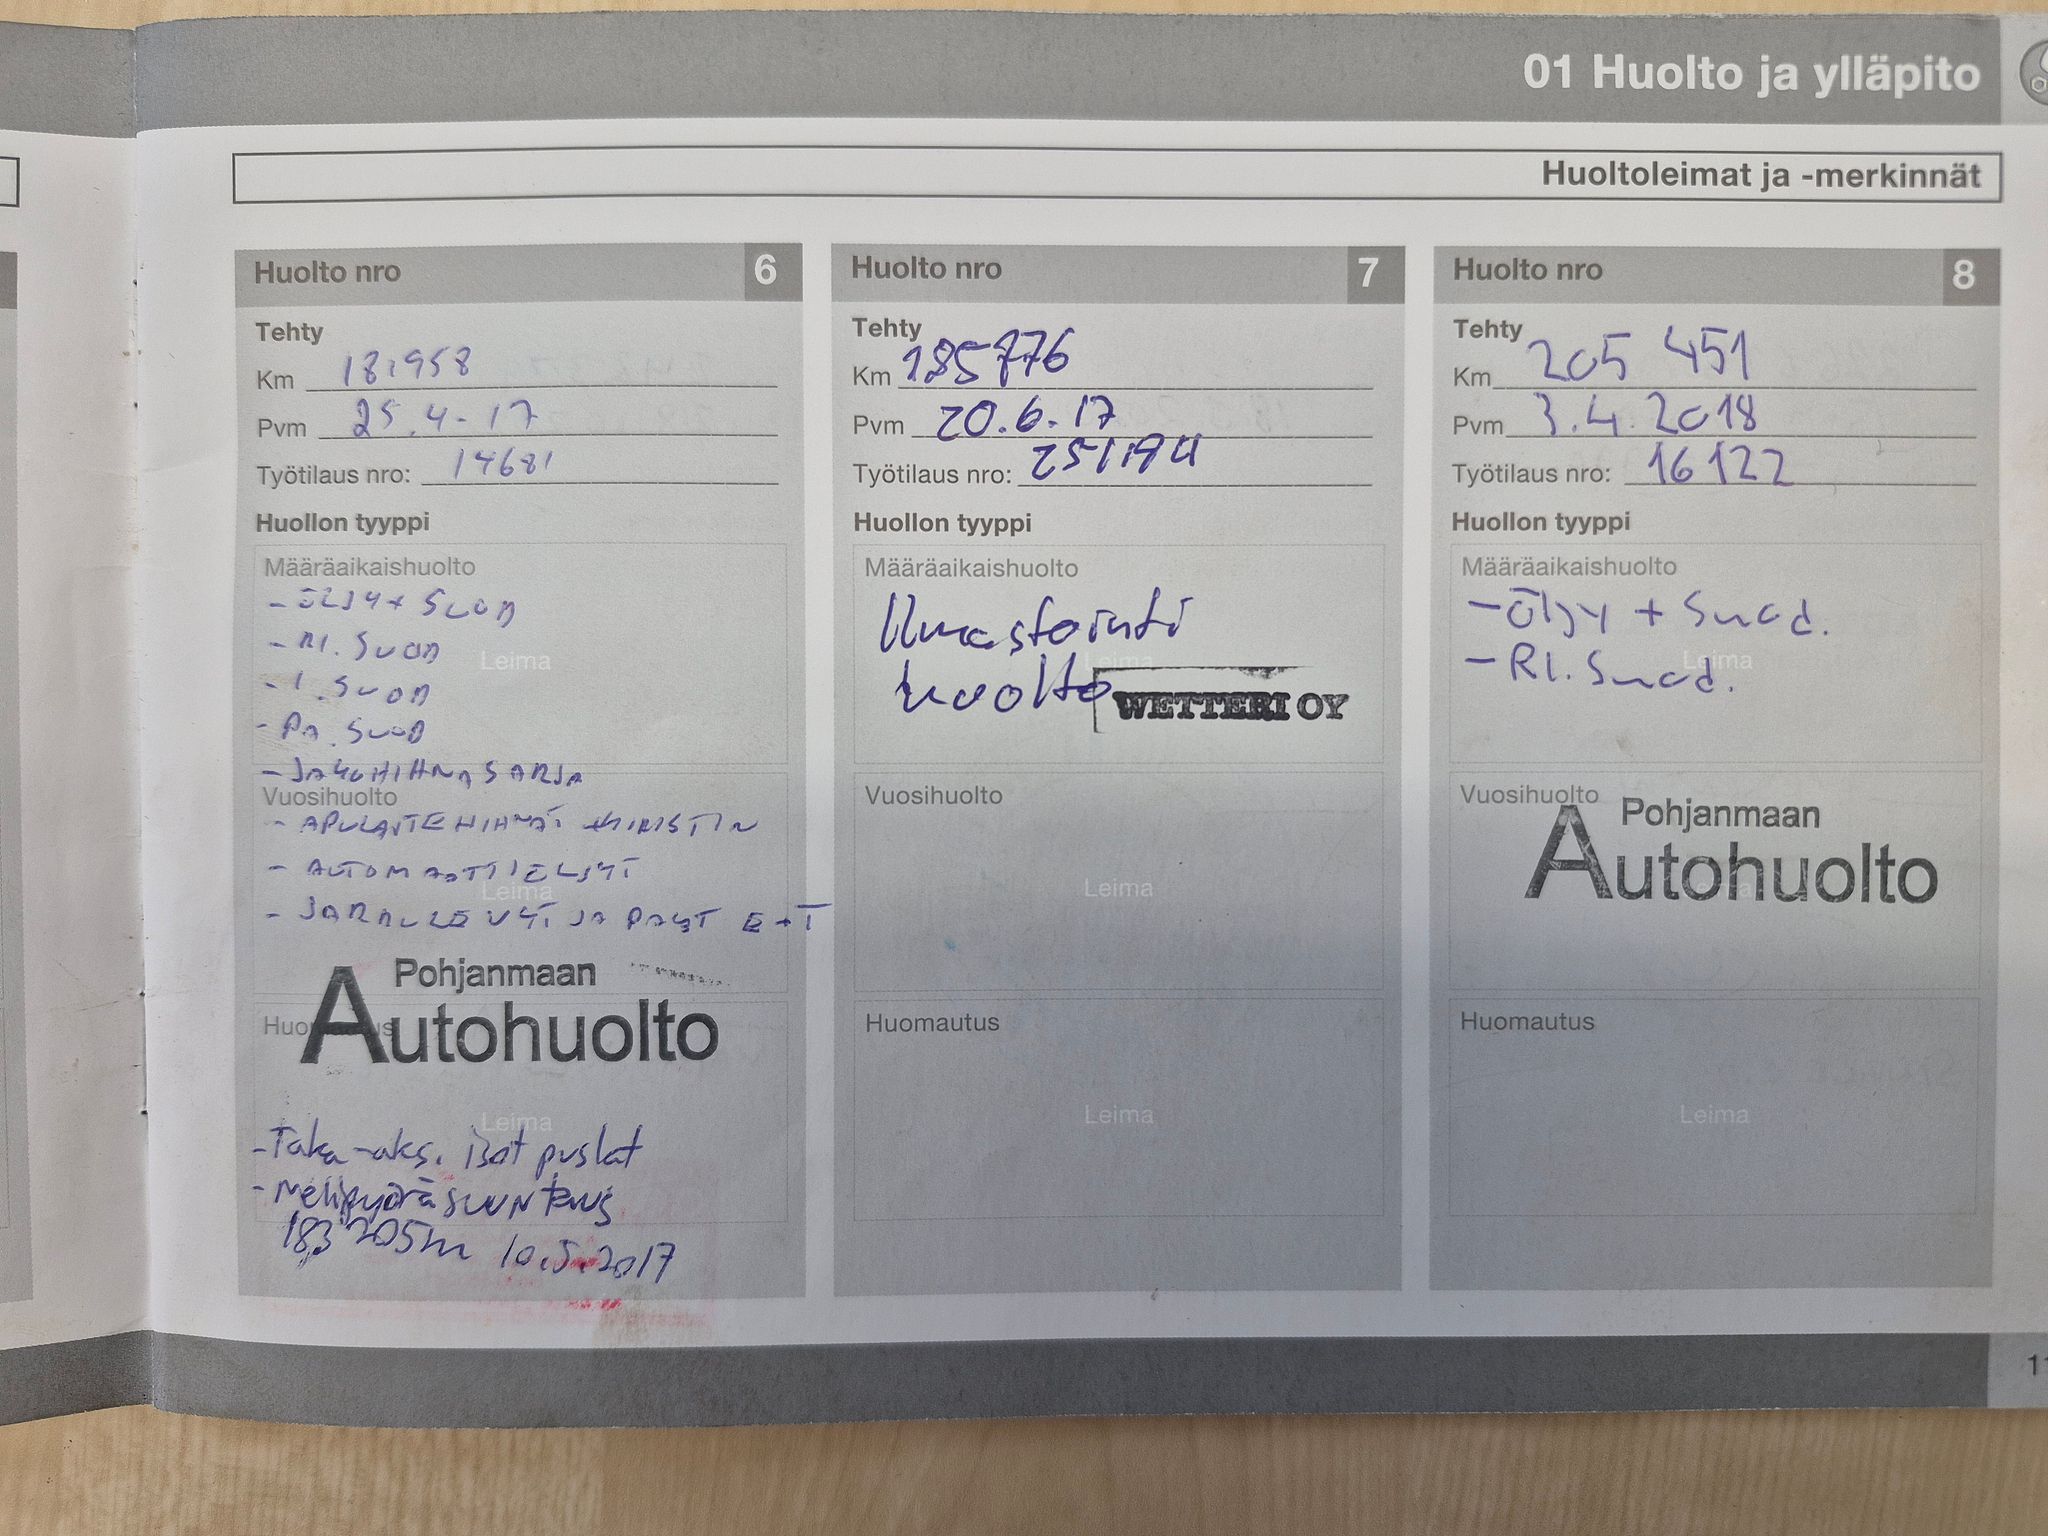 01 Huolto ja ylläpito
Huoltoleimat ja -merkinnät
Huolto nro 6
Tehty
Km 181958
Pvm 25.4.17
Työtilaus nro: 14681
Huollon tyyppi
Määräaikaishuolto
- ÖLJY + SUOD
- RI. SUOD
Leima
- I. SUOD
- PA. SUOD
- JAKOHIHNASARJA
Vuosihuolto
- APULAITEHIHNAT KIRISTIN
- AUTOMAATTIÖLJYT
Leima
- JARRULEVYT JA PALAT E+T
Pohjanmaan
Autohuolto
Huomautus
Leima
- Taka-aks. isot puslat
- Nelipyöräsuuntaus
183 205km 10.5.2017
Huolto nro 7
Tehty
Km 185776
Pvm 20.6.17
Työtilaus nro:
Huollon tyyppi
Määräaikaishuolto
Ilmastointi
Leima
huolto
WETTERI OY
Vuosihuolto
Leima
Huomautus
Leima
Huolto nro 8
Tehty
Km 205 451
Pvm 3.4.2018
Työtilaus nro: 16122
Huollon tyyppi
Määräaikaishuolto
- Öljy + Suod.
- RI. Suod.
Leima
Vuosihuolto
Pohjanmaan
Autohuolto
Leima
Huomautus
Leima
11